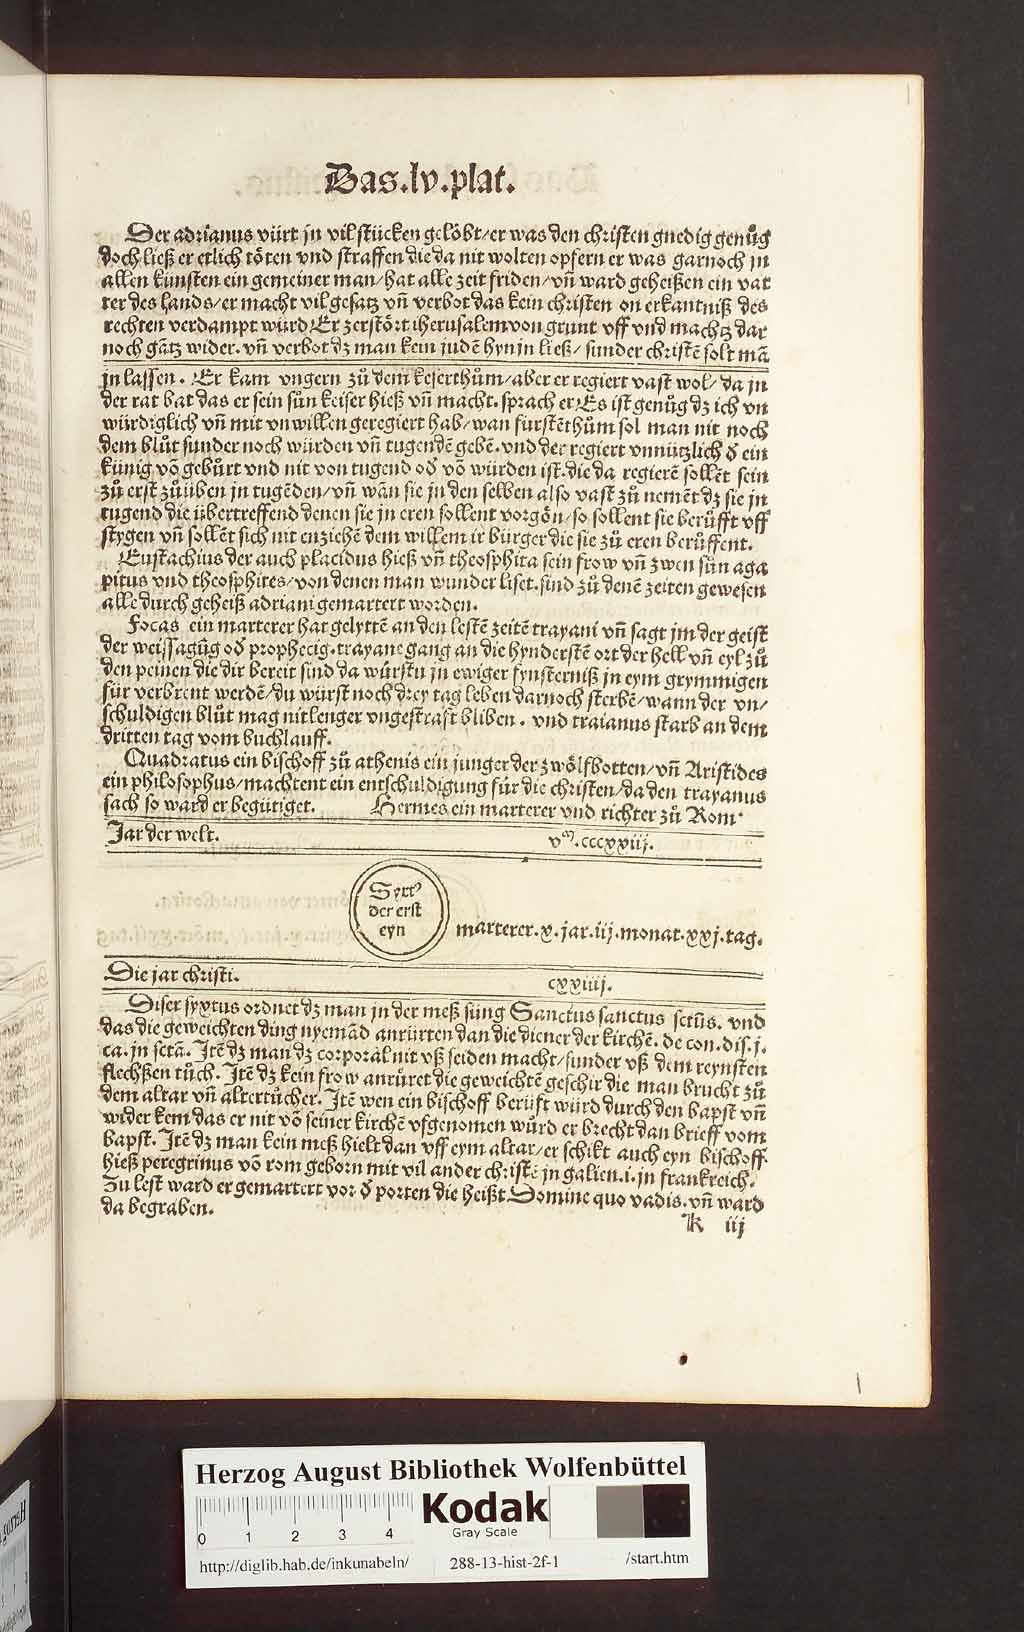 Das.lv.plat.
Der adrianus würt jn vil stücken gelöbt/er was den christen gnedig genůg
doch ließ er etlich töten vnd straffen die da nit wolten opfern er was gar noch jn
allen künsten ein gemeiner man/hat alle zeit friden/vn̄ ward geheißen ein vat
ter des lands/er macht vil gesatz vn̄ verbot das kein christen on erkantniß des
rechten verdampt würd/Er zerstört iherusalem von grunt vff vnd machtz dar
noch gātz wider. vn̄ verbot dz man kein judē hyn jn ließ/sunder christē solt mā
jn lassen. Er kam vngern zů dem keserthům/aber er regiert vast wol/da jn
der rat bat das er sein sůn keiser hieß vn̄ macht. sprach er/Es ist genůg dz ich vn
würdiglich vn̄ mit vnwillen geregiert hab/wan fürstēthům sol man nit noch
dem blůt sunder noch würden vn̄ tugendē gebē. vnd der regiert vnnützlich ð ein
künig vō gebůrt vnd nit von tugend oð vō würden ist. die da regierē sollēt sein
zů erst zůüben jn tugēden/vn̄ wān sie jn den selben also vast zů nemēt dz sie jn
tugend die übertreffend denen sie jn eren sollent vorgōn/so sollent sie berůfft vff
stygen vn̄ sollēt sich nit enziehē dem willem ir bürger die sie zů eren berůffent.
Eustachius der auch placidus hieß vn̄ theosphita sein frow vn̄ zwen sůn aga
pitus vnd theosphites/von denen man wunder liset. sind zů denē zeiten gewesen
alle durch geheiß adriani gemartert worden.
Focas ein marterer hat gelyttē an den lestē zeitē trayani vn̄ sagt jm der geist
der weissagūg oð prophecig. trayane gang an die hynderstē ort der hell vn̄ eyl zů
den peinen die dir bereit sind da würstu jn ewiger fynsterniß jn eym grymmigen
für verbrent werdē/du würst noch drey tag leben darnoch sterbē/wann der vn/
schuldigen blůt mag nit lenger vngestraft bliben. vnd traianus starb an dem
dritten tag vom buchlauff.
Quadratus ein bischoff zů athenis ein junger der zwölfbotten/vn̄ Aristides
ein philosophus/machtent ein entschuldigung für die christen/da den trayanus
sach so ward er begütiget. Hermes ein marterer vnd richter zů Rom.
Jar der welt. vᵐ.cccxxiij.
Syxtꝰ
der erst
eyn
marterer.x.jar.iij.monat.xxj.tag.
Die jar christi. cxxiiij.
Diser syxtus ordnet dz man jn der meß sung Sanctus sanctus sctūs. vnd
das die geweichten ding nyemād anrürten dan die diener der kirchē. de con.dis.j.
ca. jn sctā. Jtē dz man dz corporal nit vß seiden macht/sunder vß dem reynsten
flechßen tůch. Jtē dz kein frow anrůret die geweichtē geschir die man brucht zů
dem altar vn̄ altertůcher. Jtē wen ein bischoff berüft würd durch den bapst vn̄
wider kem das er nit vō seiner kirchē vfgenomen wůrd er brecht dan brieff vom
bapst. Jtē dz man kein meß hielt dan vff eym altar/er schikt auch eyn bischoff
hieß peregrinus vō rom geborn mit vil ander christē jn galien.i.jn frankreich.
Zu lest ward er gemartert vor ð porten die heißt Domine quo vadis. vn̄ ward
da begraben.
k iij
Herzog August Bibliothek Wolfenbüttel
0 1 2 3 4
Kodak
Gray Scale
http://diglib.hab.de/inkunabeln/ 288-13-hist-2f-1 /start.htm